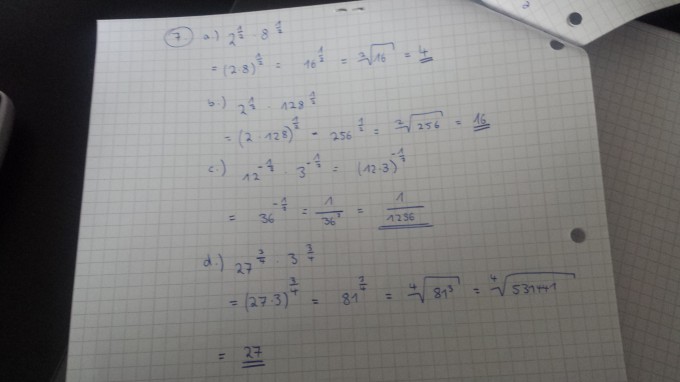 7. a.) 2^(1/2) · 8^(1/2)
= (2·8)^(1/2) = 16^(1/2) = ²√16 = 4
b.) 2^(1/2) · 128^(1/2)
= (2·128)^(1/2) = 256^(1/2) = ²√256 = 16
c.) 12^(-1/2) · 3^(-1/2) = (12·3)^(-1/2)
= 36^(-1/2) = 1/36² = 1/1296
d.) 27^(3/4) · 3^(3/4)
= (27·3)^(3/4) = 81^(3/4) = ⁴√81³ = ⁴√531441
= 27